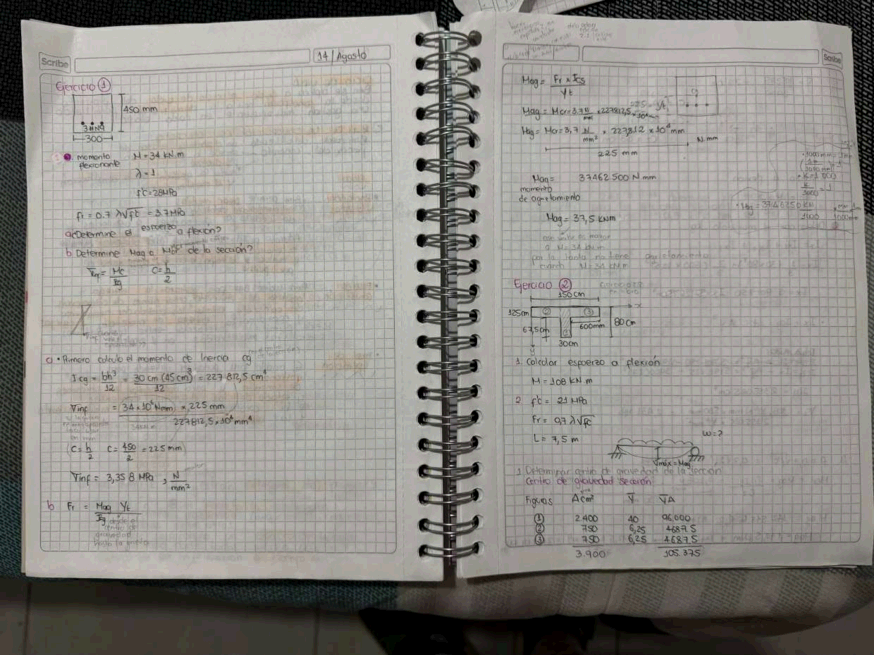 Scribe
14/Agosto
Ejercicio ①
450 mm
3#N9
300
momento flexionante M=34 kN.m
λ=1
f'c=28MPa
fr = 0.7 λ√f'c = 3.7MPa
a. Determine el esfuerzo a flexión?
b. Determine Mag a de la sección?
= Mc/Ig C = h/2
a • Primero calculo el momento de Inercia cg
Icg = bh³/12 = 30 cm (45 cm)³/12 = 227 812,5 cm⁴
∇inf = 34×10⁶ Nmm × 225 mm
227812,5 × 10⁴ mm⁴
C = h/2 C = 450/2 = 225 mm
∇inf = 3,358 MPa, N/mm²
b Fr = Mag Yt
Ig
Scribe
Mag = Fr × Icg
Yt
Mag = Mcr = 3.7 N × 227812,5
Mag = Mcr = 3,7 N/mm² × 227812 × 10⁴ mm
225 mm
N.mm
Mag = 37462500 N mm
momento
de agretamiento
Mag = 37,5 kNm
Ejercicio ②
150cm
125cm
67,5cm
600mm
80cm
30cm
1 Calcular esfuerzo a flexión
M = 108 kN.m
2 f'c = 21 MPa
Fr = 0,7 λ√f'c
L = 7,5 m
w=?
Mmáx = Mag
1 Determinar centro de gravedad de la sección
Centro de gravedad sección
Figuras A cm² Ȳ ȲA
① 2.400 40 96.000
② 750 6,25 4687.5
③ 750 6,25 4687.5
3.900 105.375